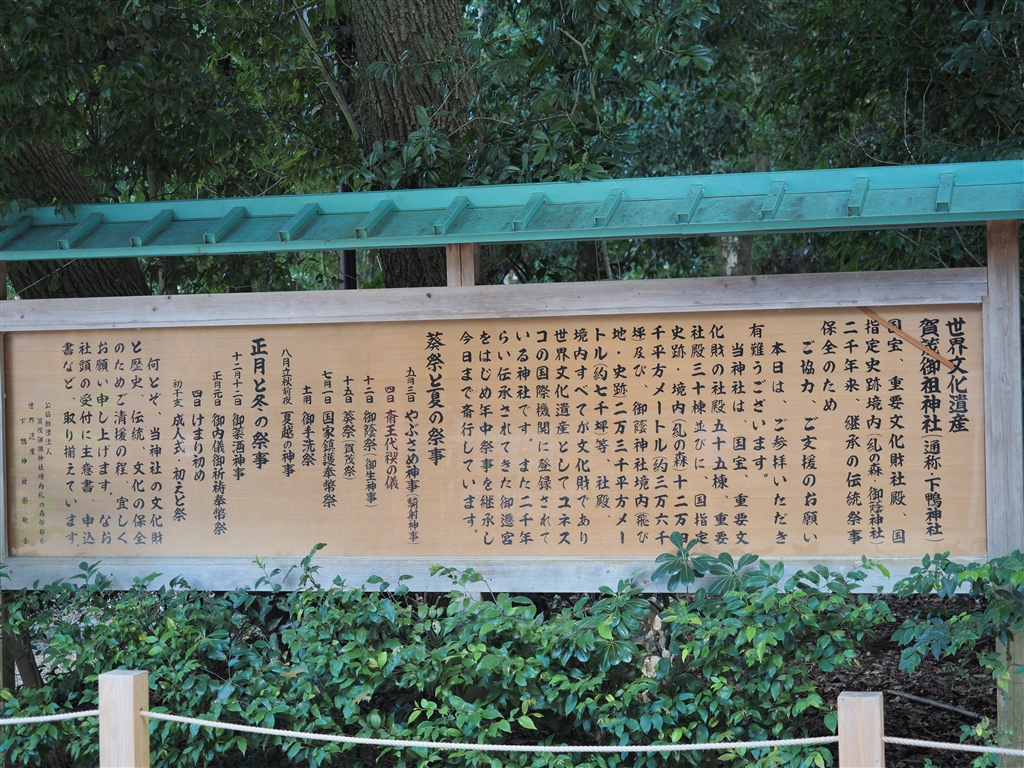 世界文化遺産
賀茂御祖神社(通称、下鴨神社)
国宝、重要文化財社殿、国
指定史跡境内(糺の森、御蔭神社)
二千年来、継承の伝統祭事
保全のため
ご協力、ご支援のお願い
本日は、ご参拝いただき
有難うございます。
当神社は、国宝、重要文
化財の社殿五十五棟、重要
社殿三十棟並びに、国指定
史跡・境内(糺の森)十二万四
千平方メートル(約三万六千
坪)及び、御蔭神社境内(飛び
地・史跡)二万三千平方メー
トル(約七千坪)等、社殿、
境内すべてが文化財であり
世界文化遺産としてユネス
コの国際機関に登録されて
いる神社です。また二千年
らい伝承されてきた御遷宮
をはじめ年中祭事を継承し
今日まで斎行しています。
葵祭と夏の祭事
五月三日 やぶさめ神事(騎射神事)
四日 斎王代禊の儀
十二日 御蔭祭(御生神事)
十五日 葵祭(賀茂祭)
七月一日 国家鎮護奉幣祭
土用 御手洗祭
八月立秋前夜 夏越の神事
正月と冬の祭事
十二月十二日 御薬酒神事
正月元日 御内儀御祈祷奉幣祭
四日 けまり初め
初子亥 成人式、初えと祭
何とぞ、当神社の文化財
と歴史、伝統、文化の保全
のためご清援の程、宜しく
お願い申し上げます。なお
社頭の受付に主意書、申込
書など、取り揃えています。
公益財団法人
世界遺産 下鴨神社崇敬会